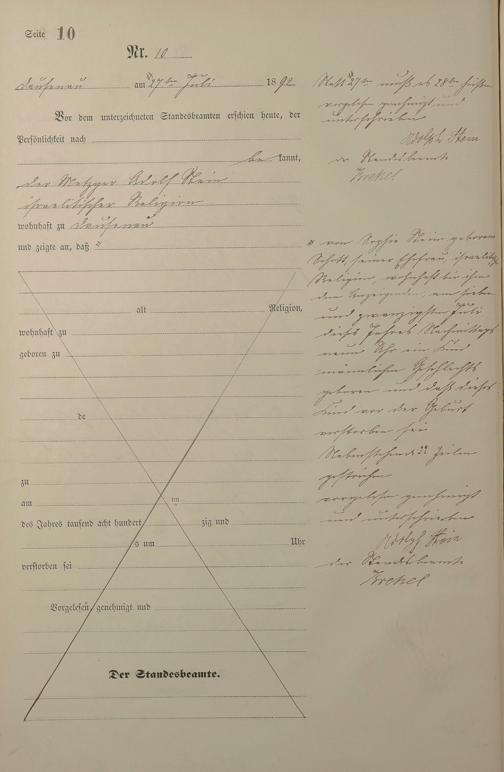 Seite 10
Nr. 10
Dausenau am "27ten Juli 1892
Vor dem unterzeichneten Standesbeamten erschien heute, der
Persönlichkeit nach
be kannt,
der Metzger Adolf Stein
israelitischer Religion
wohnhaft zu Dausenau
und zeigte an, daß "
alt Religion,
wohnhaft zu
geboren zu
de
zu
am
des Jahres tausend acht hundert zig und
s um Uhr
verstorben sei
Vorgelesen, genehmigt und
Der Standesbeamte.
Statt "27ten muß es 28ten heißen
vorgelesen genehmigt und
unterschrieben
Adolph Stein
der Standesbeamte
Krekel
" von Sophie Stein geborene
Schott, seiner Ehefrau, israelitischer
Religion, wohnhaft bei ihm
dem Anzeigenden, am sieben
und zwanzigsten Juli
dieses Jahres Nachmittags
neun Uhr ein Kind
männlichen Geschlechts
geboren und daß dieses
Kind vor der Geburt
verstorben sei
Nebenstehende 22 Zeilen
gestrichen
vorgelesen genehmigt
und unterschrieben
Adolph Stein
der Standesbeamte
Krekel